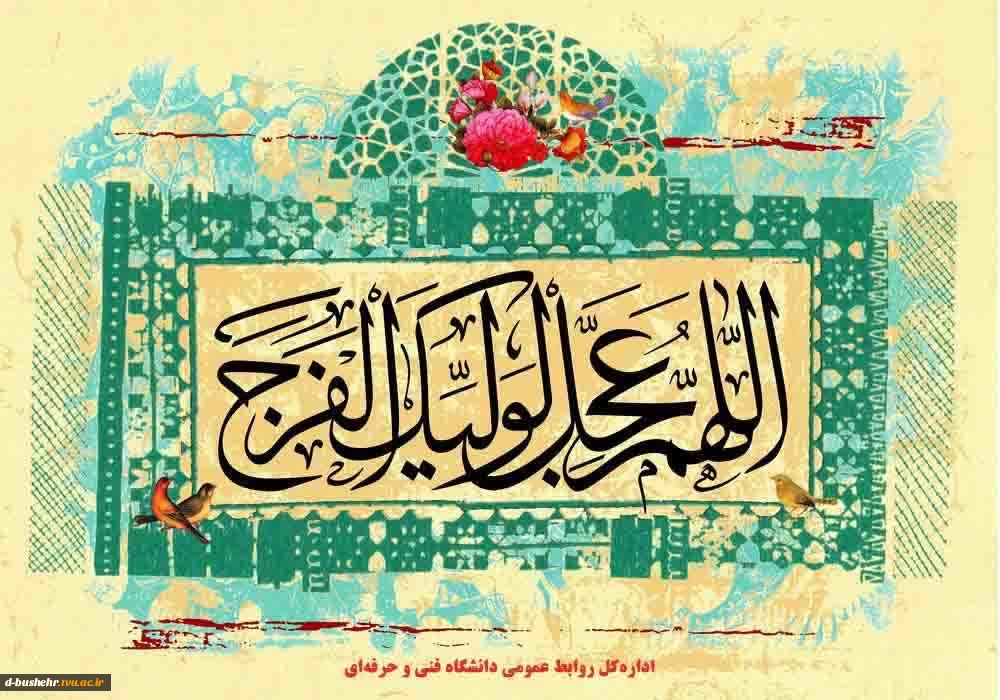 اللّٰهُمَّ عَجِّل لِوَلیِّکَ الْفَرَجَ
اداره‌کل روابط عمومی دانشگاه فنی و حرفه‌ای
d-bushehr.tvu.ac.ir